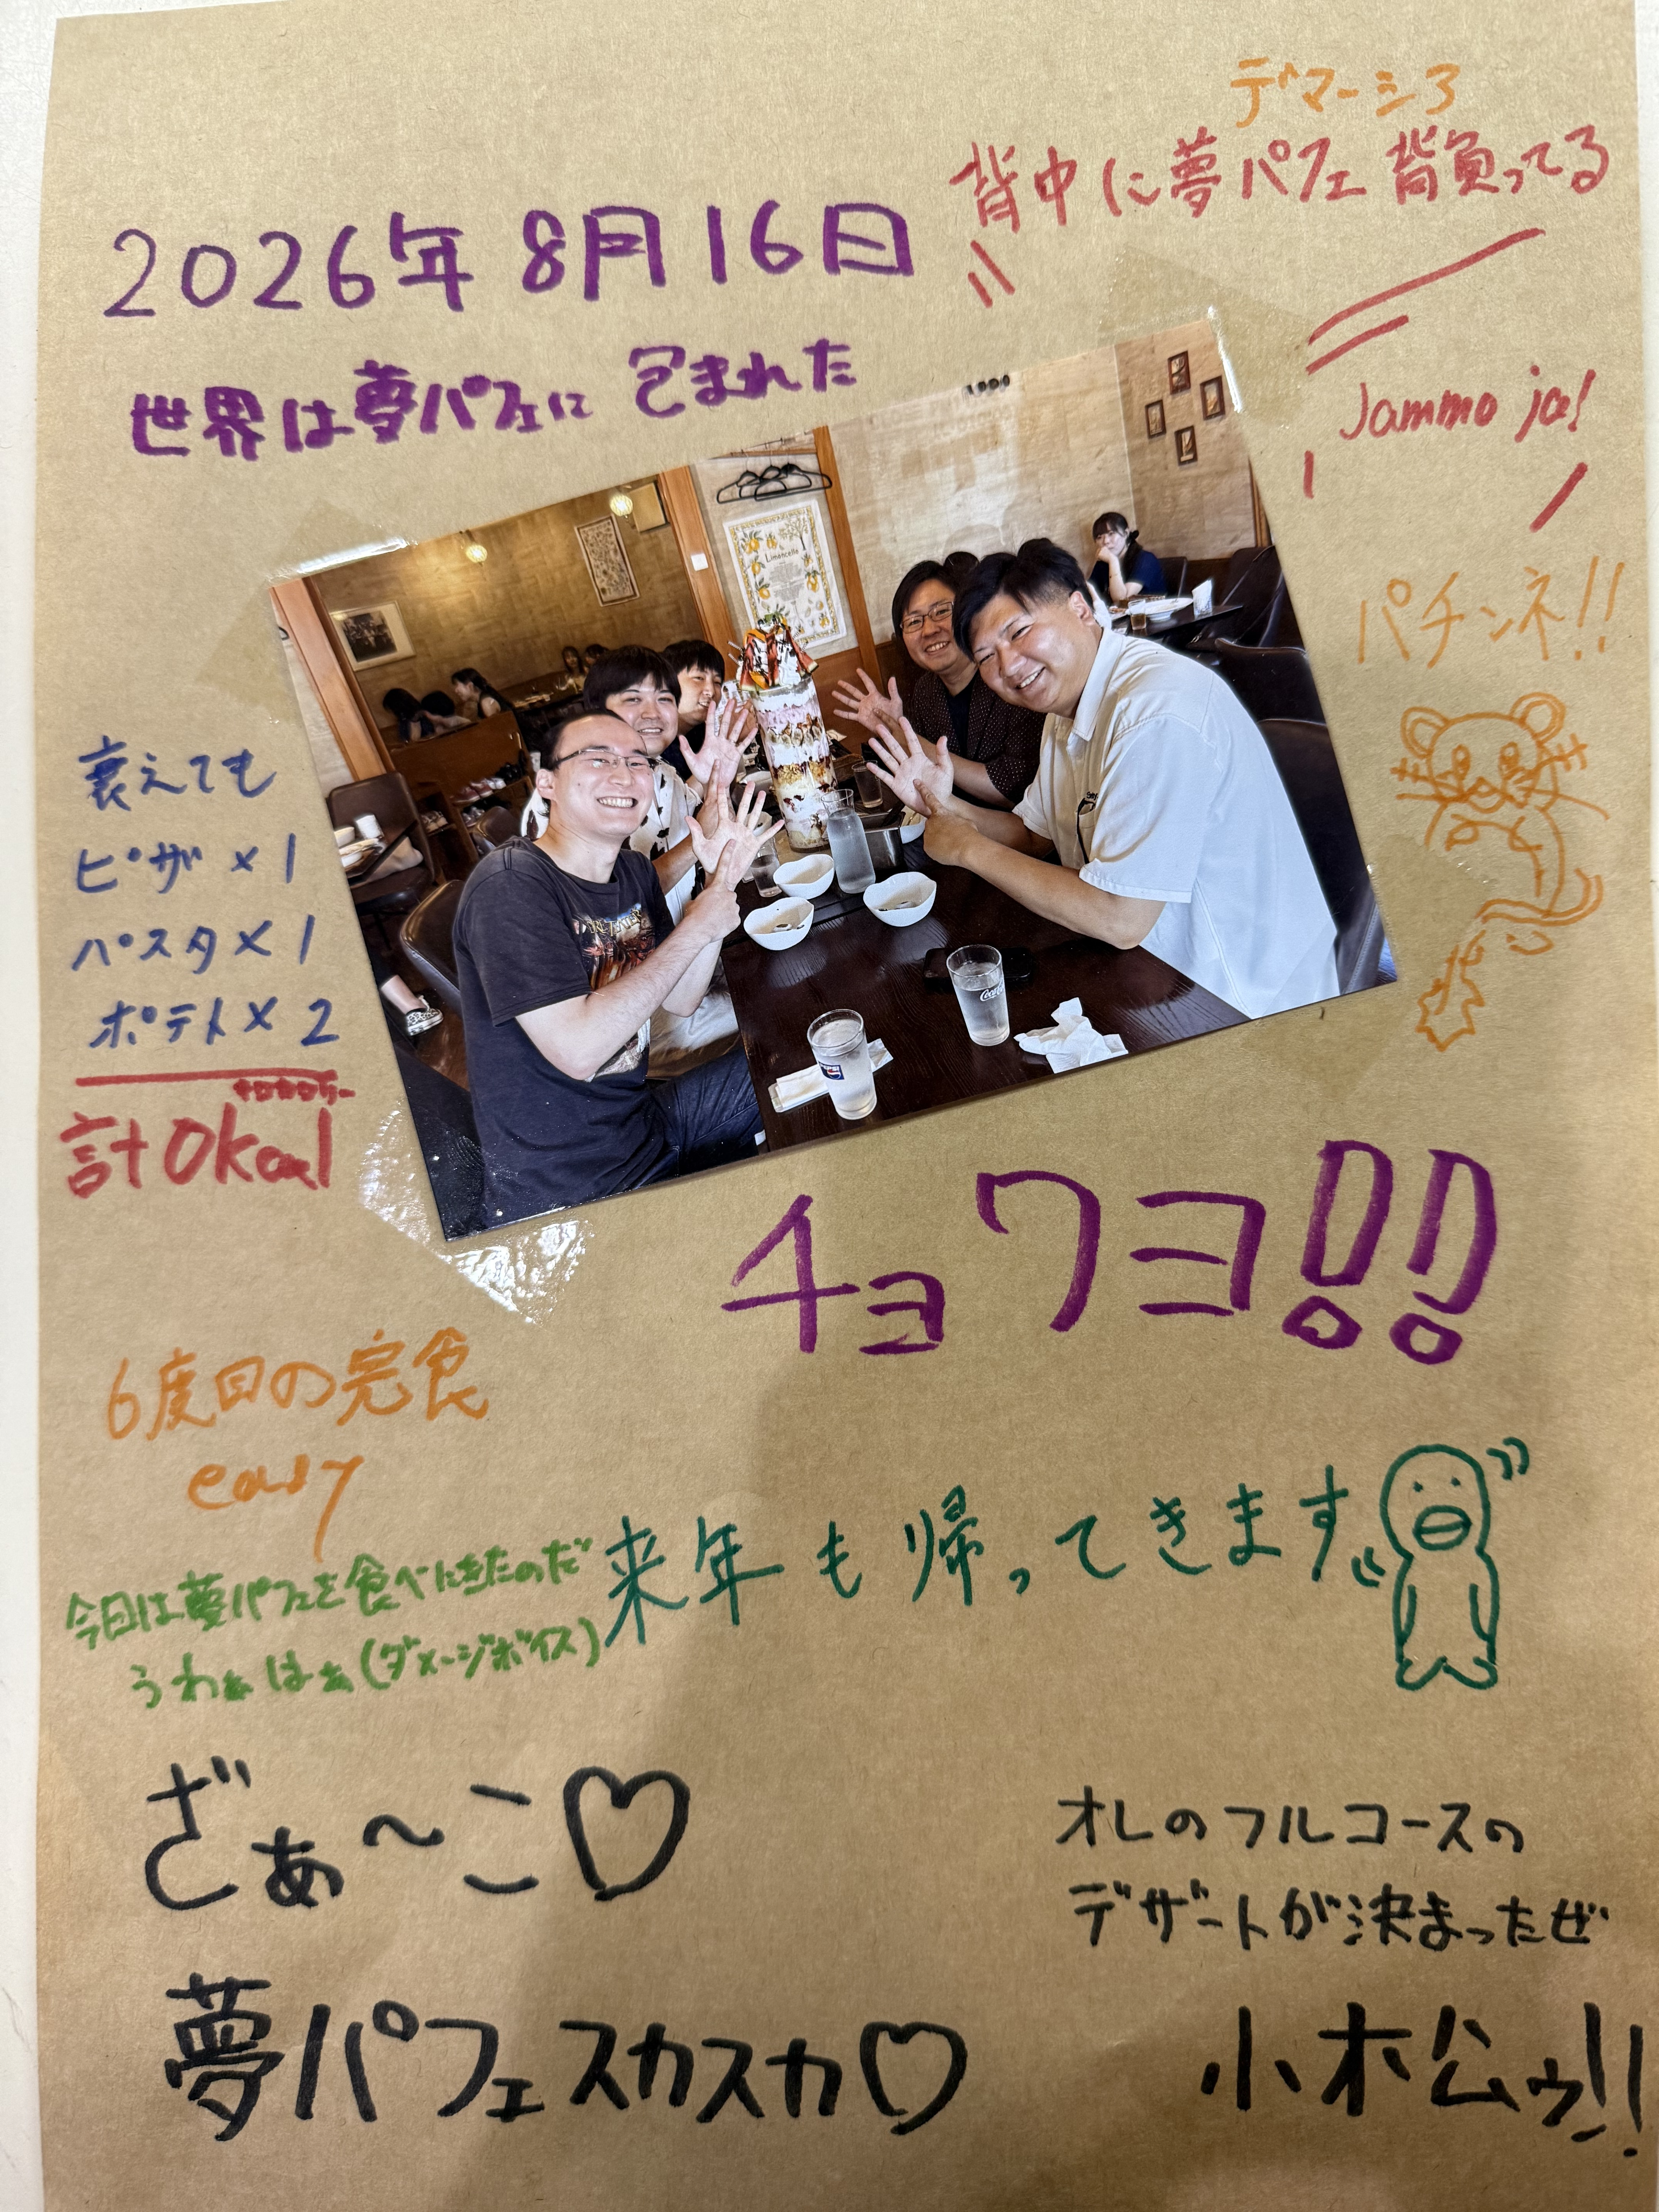 デマーシア
背中に夢パフェ背負ってる
2026年8月16日
世界は夢パフェに包まれた
Jammo ja!
パチンネ!!
Limoncello
衰えても
ピザ×1
パスタ×1
ポテト×2
ゼロカロリー
計0kcal
チョワヨ!!
6度目の完食
easy
来年も帰ってきます
今日は夢パフェを食べにきたのだ
うわぁはぁ(ダメージボイス)
ざぁ～こ♡
オレのフルコースの
デザートが決まったぜ
夢パフェスカスカ♡
小松ゥ!!